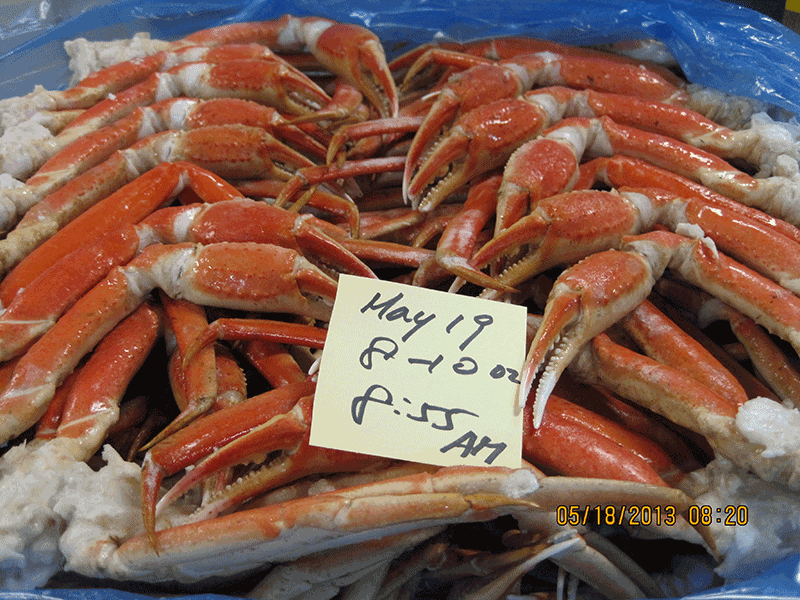 May 19
8-10 oz
8:55
AM
05/18/2013 08:20